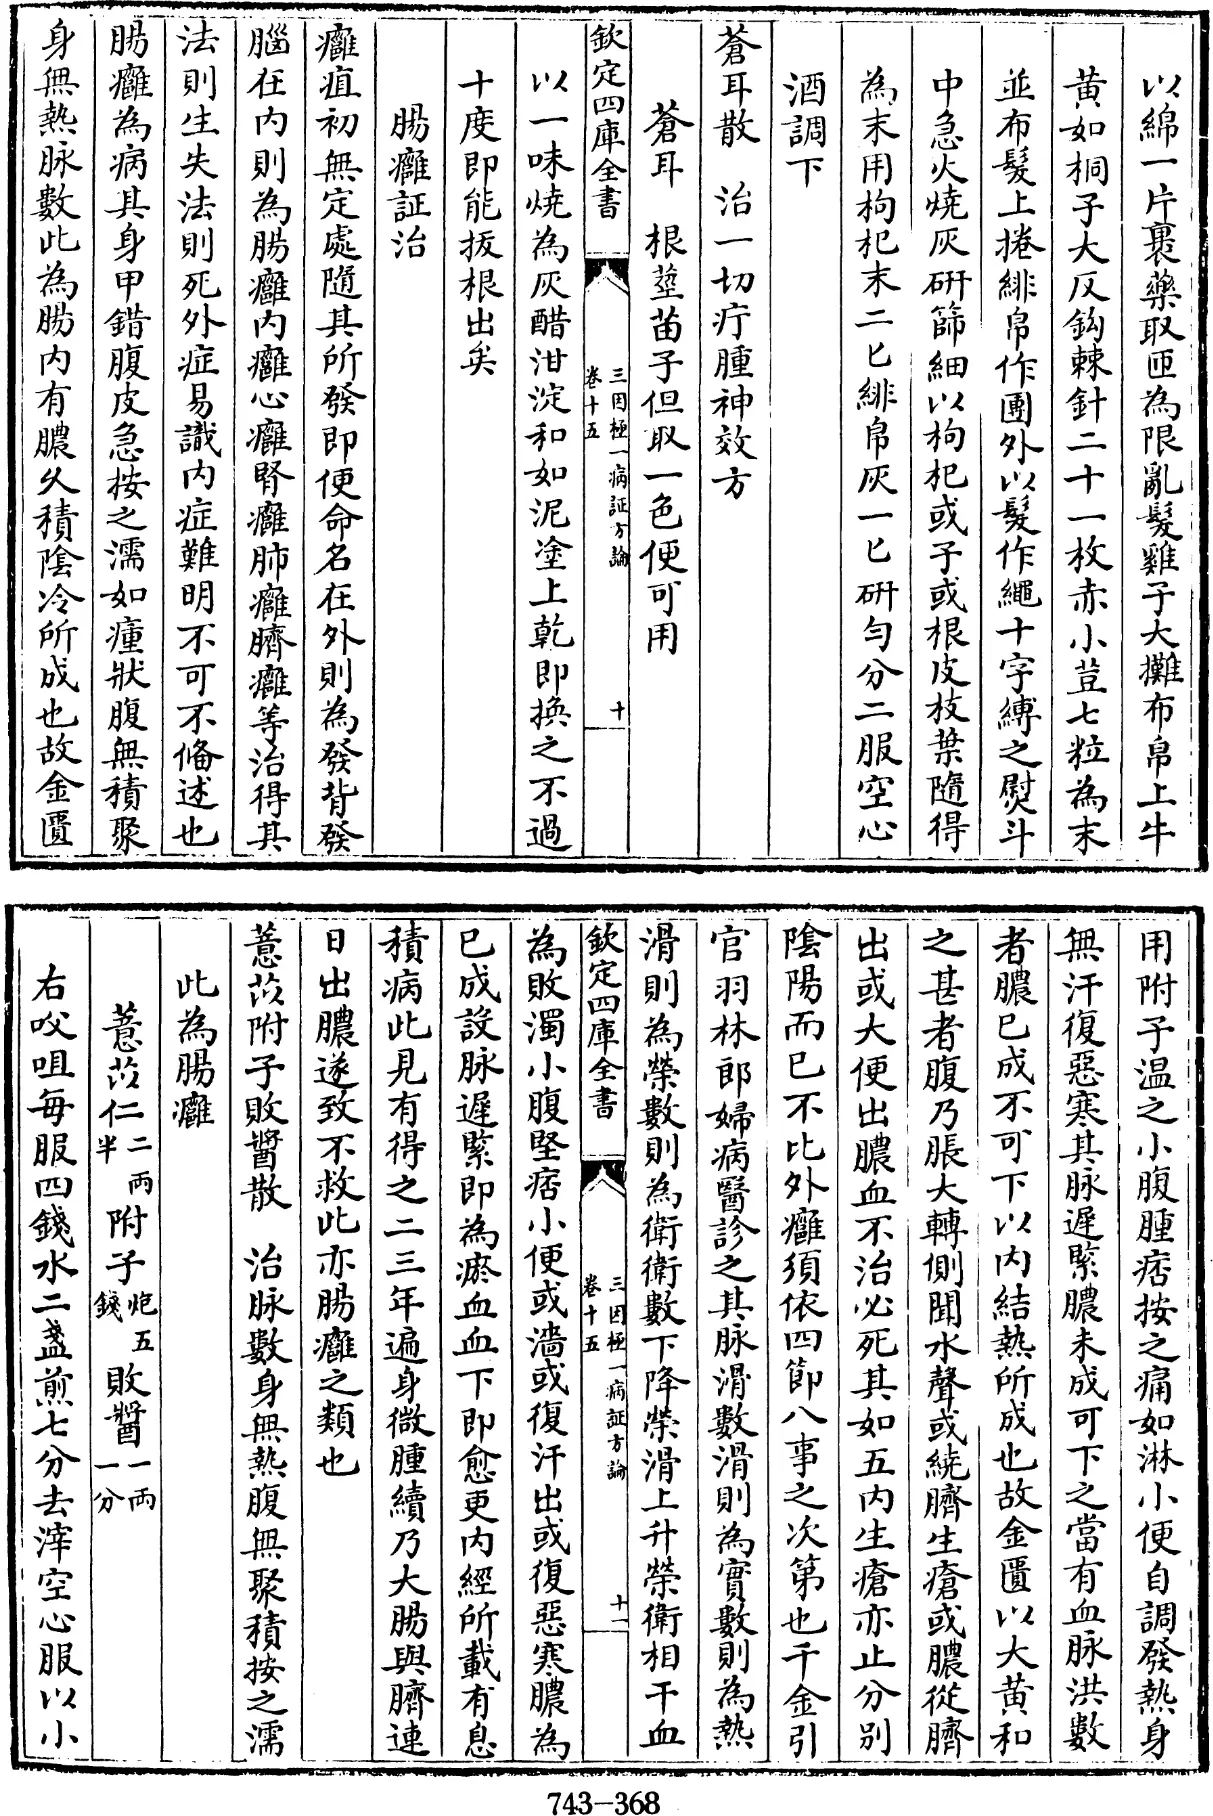 以綿一片裹藥取匝為限亂髮雞子大攤布帛上牛
黄如桐子大反鈎棘針二十一枚赤小荳七粒為末
並布髮上捲緋帛作團外以髮作繩十字縛之熨斗
中急火燒灰研篩細以枸杞或子或根皮枝葉隨得
為末用枸杞末二匕緋帛灰一匕研勻分二服空心
酒調下
蒼耳散　治一切疔腫神效方
蒼耳　根莖苗子但取一色便可用
欽定四庫全書　三因極一病証方論　卷十五　十
以一味燒為灰醋泔淀和如泥塗上乾即換之不過
十度即能拔根出矣
腸癰証治
癰疽初無定處隨其所發即便命名在外則為發背發
腦在内則為腸癰内癰心癰腎癰肺癰臍癰等治得其
法則生失法則死外症易識内症難明不可不俻述也
腸癰為病其身甲錯腹皮急按之濡如瘇狀腹無積聚
身無熱脉數此為腸内有膿乆積陰冷所成也故金匱
用附子温之小腹腫痞按之痛如淋小便自調發熱身
無汗復惡寒其脉遲緊膿未成可下之當有血脉洪數
者膿已成不可下以内結熱所成也故金匱以大黄和
之甚者腹乃脹大轉側聞水聲或繞臍生瘡或膿從臍
出或大便出膿血不治必死其如五内生瘡亦止分别
陰陽而已不比外癰須依四節八事之次第也千金引
官羽林郎婦病醫診之其脉滑數滑則為實數則為熱
滑則為榮數則為衛衛數下降榮滑上升榮衛相干血
欽定四庫全書　三因極一病証方論　卷十五　十一
為敗濁小腹堅痞小便或濇或復汗出或復惡寒膿為
已成設脉遲緊即為瘀血血下即愈更内經所載有息
積病此見有得之二三年遍身微腫續乃大腸與臍連
日出膿遂致不救此亦腸癰之類也
薏苡附子敗醬散　治脉數身無熱腹無聚積按之濡
此為腸癰
薏苡仁二兩半　附子炮五錢　敗醬一兩一分
右㕮咀每服四錢水二盞煎七分去滓空心服以小
743-368